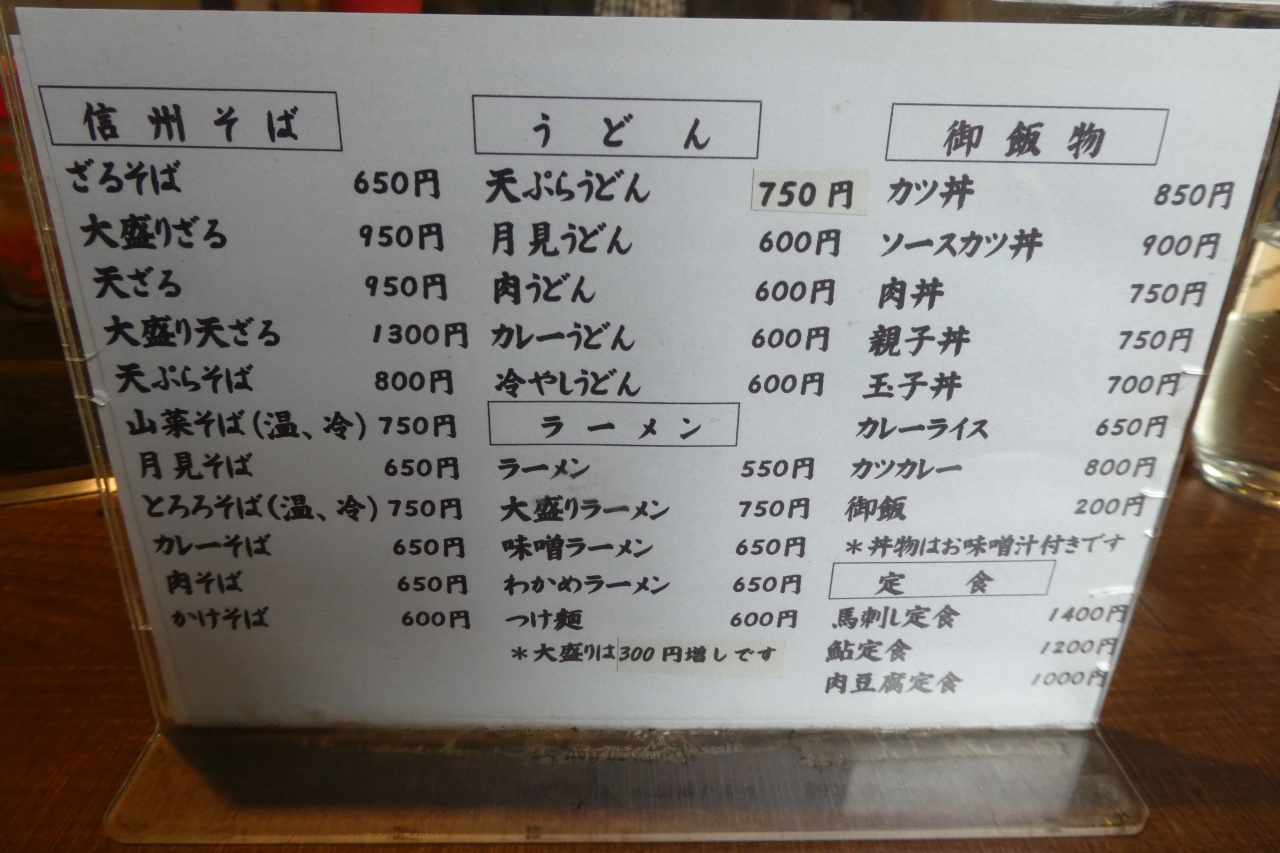 信州そば
ざるそば 650円
大盛りざる 950円
天ざる 950円
大盛り天ざる 1300円
天ぷらそば 800円
山菜そば(温、冷) 750円
月見そば 650円
とろろそば(温、冷) 750円
カレーそば 650円
肉そば 650円
かけそば 600円
うどん
天ぷらうどん 750円
月見うどん 600円
肉うどん 600円
カレーうどん 600円
冷やしうどん 600円
ラーメン
ラーメン 550円
大盛りラーメン 750円
味噌ラーメン 650円
わかめラーメン 650円
つけ麺 600円
＊大盛りは300円増しです
御飯物
カツ丼 850円
ソースカツ丼 900円
肉丼 750円
親子丼 750円
玉子丼 700円
カレーライス 650円
カツカレー 800円
御飯 200円
＊丼物はお味噌汁付きです
定食
馬刺し定食 1400円
鮎定食 1200円
肉豆腐定食 1000円